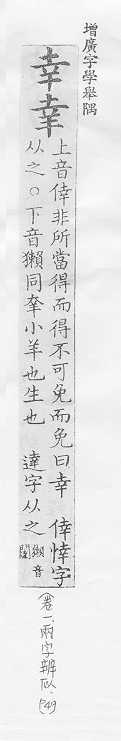 增廣字學舉隅
幸𦍒
上音倖非所當得而得不可免而免曰幸 倖悻字
从之○下音獺同羍小羊也生也 達字从之 獺音
(卷一、兩字辨似、P49)